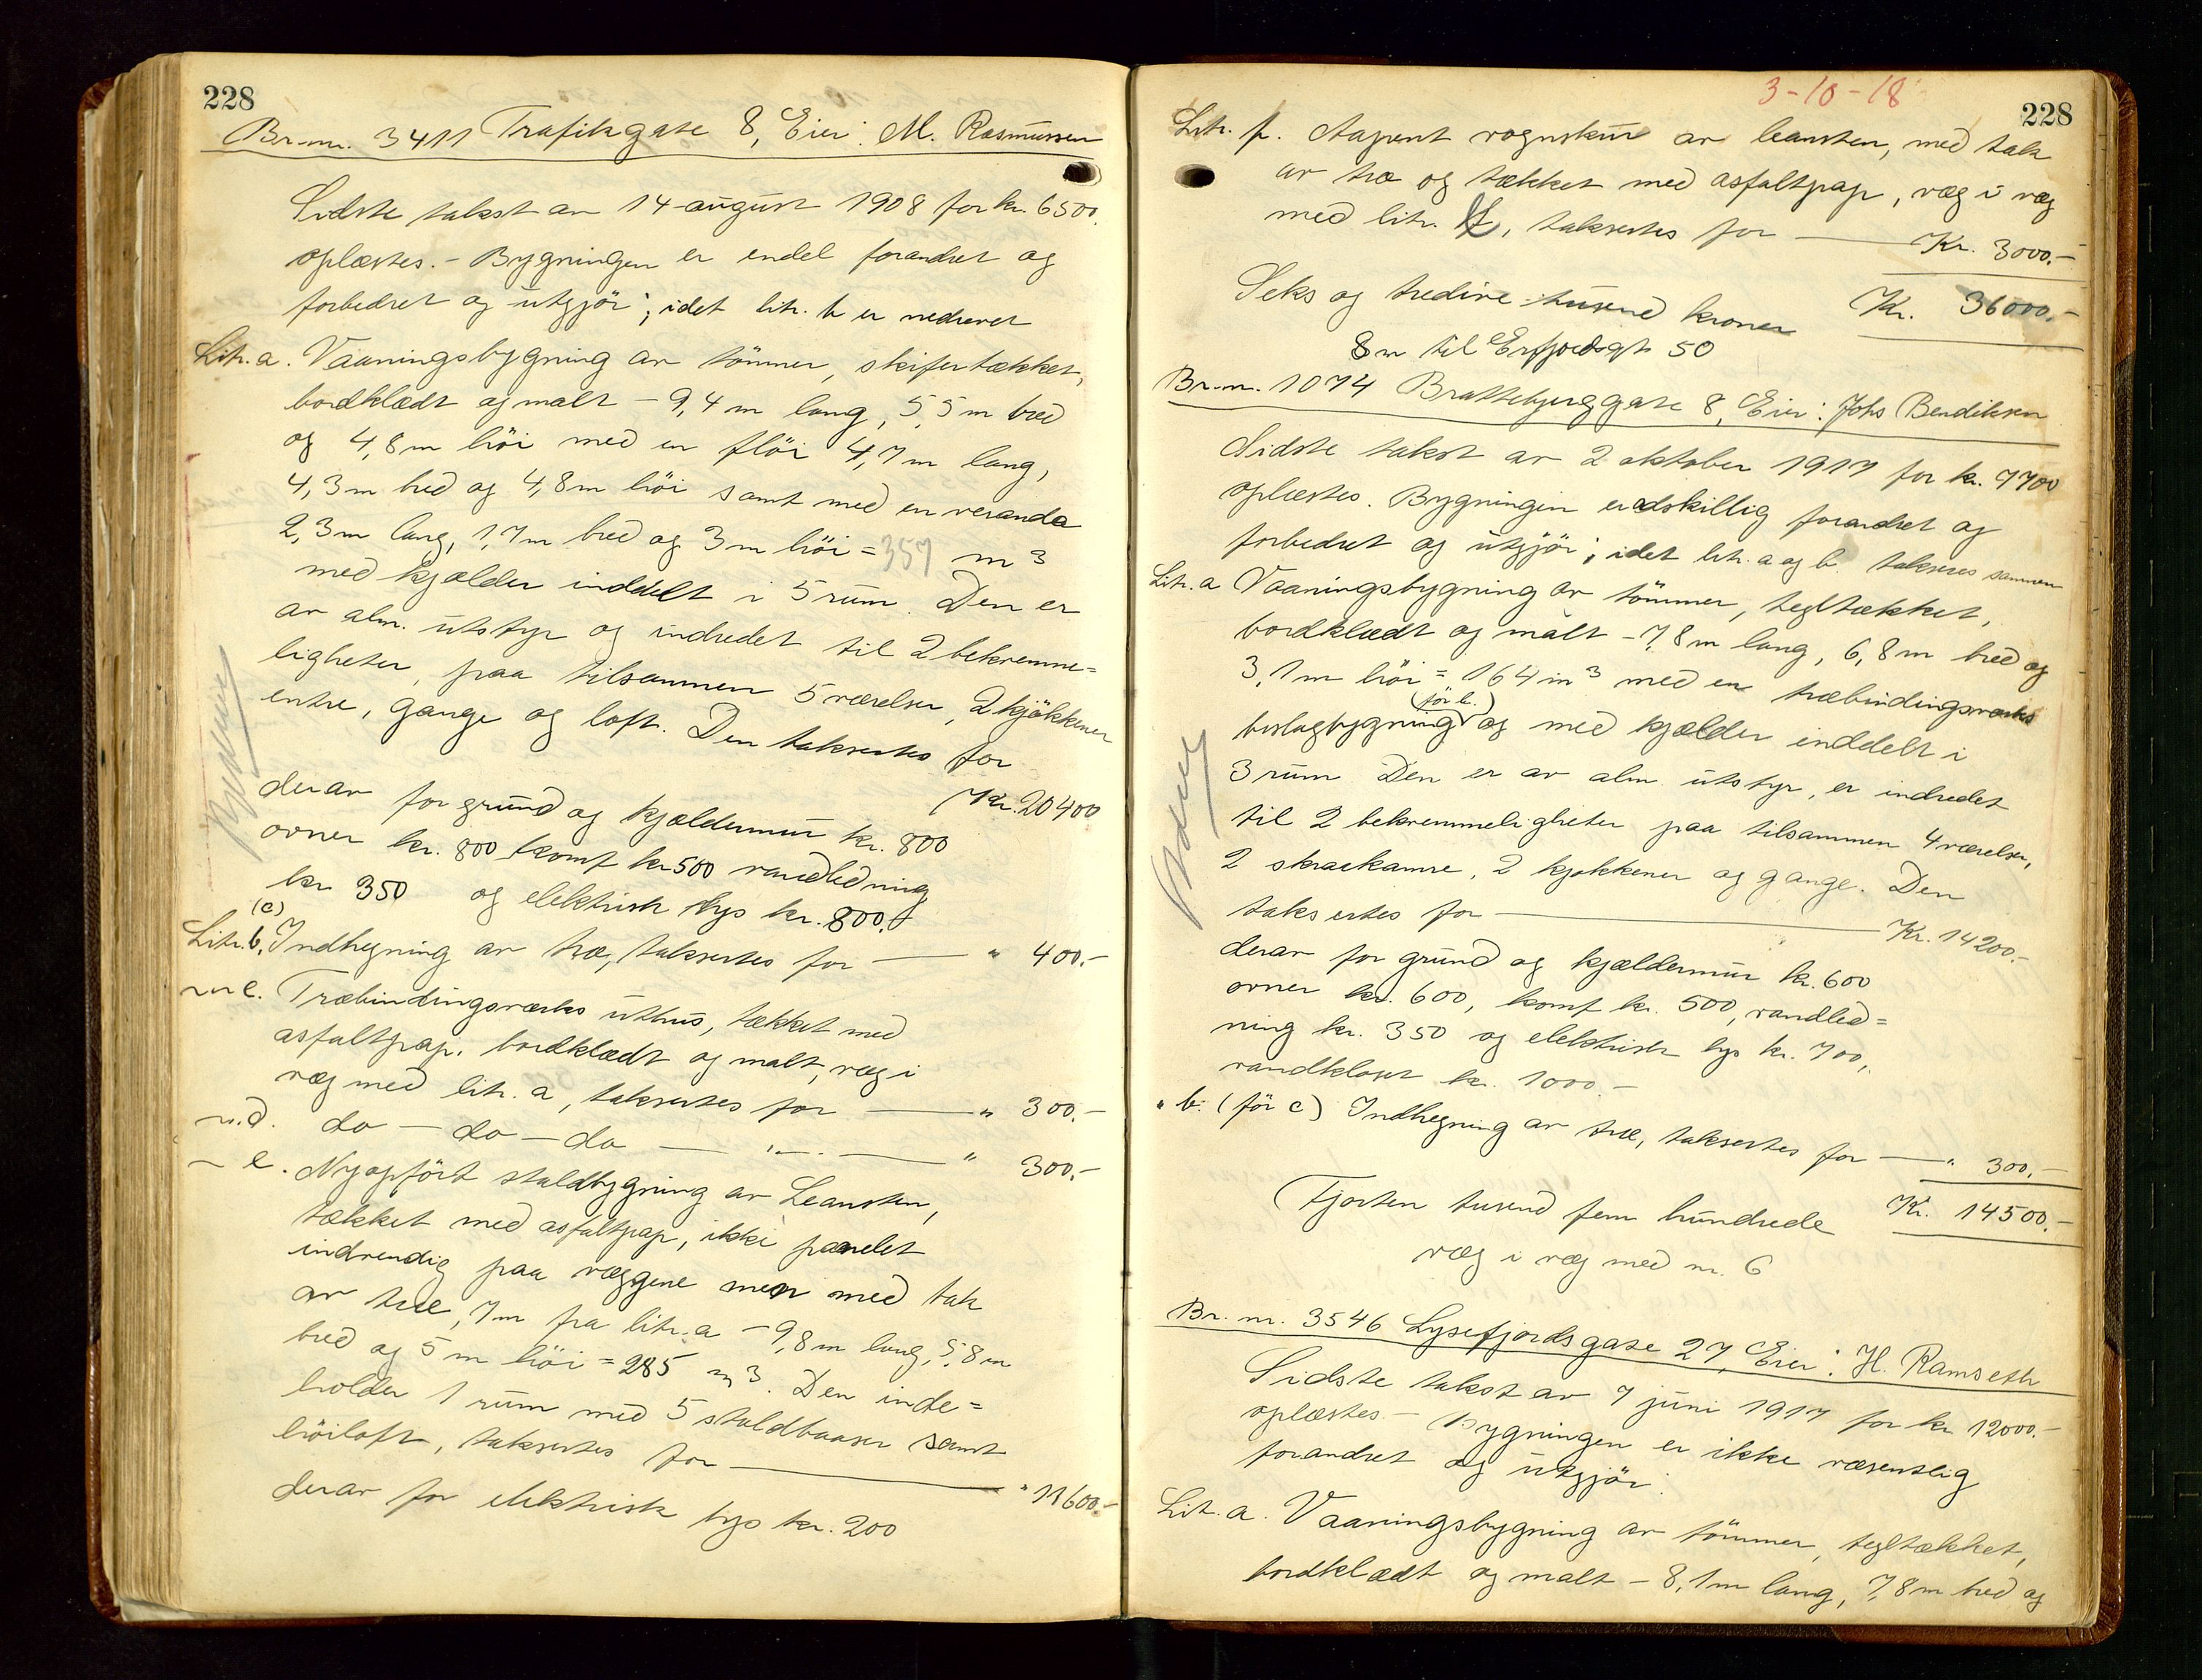 228
Br.nr. 3411 Trafikgate 8, Eier: M. Rasmussen
Sidste takst av 14 august 1908 for kr. 6500.
oplæstes. - Bygningen er endel forandret og
forbedret og utgjör; idet litr. b er nedrevet
Litr. a. Vaaningsbygning av tömmer, skifertækket,
bordklædt og malt - 9,4 m lang, 5,5 m bred
og 4,8 m höi med en flöi 4,7 m lang,
4,3 m bred og 4,8 m höi samt med en veranda
2,3 m lang, 1,7 m bred og 3 m höi = 357 m3
med kjælder inddelt i 5 rum. Den er
av alm. utstyr og indredet til 2 bekvemme=
ligheter, paa tilsammen 5 værelser, 2 kjökkener
entre, gange og loft. Den taksertes for
Kr. 20400
derav for grund og kjældermur kr. 800
ovner kr. 800 komf kr 500 vandledning
kr 350 og elektrisk lys kr. 800.
(c)
Litr. b. Indhegning av træ, taksertes for — " 400.-
c. Træbindingsværks uthus, tækket med
asfaltpap, bordklædt og malt, væg i
væg med litr. a, taksertes for — " 300.-
" d. do - do - do — " — " 300.-
" e. Nyopfört staldbygning av Leansten,
tækket med asfaltpap, ikke panelet
indvendig paa væggene men med tak
av træ, 7 m fra litr. a - 9,8 m lang, 5,8 m
bred og 5 m höi = 285 m3. Den inde=
holder 1 rum med 5 staldbaaser samt
höiloft, taksertes for — " 11600.-
derav for elektrisk lys kr. 200
3-10-18
228
Litr. f. Aapent vognskur av leansten, med tak
av træ og tækket med asfaltpap, væg i væg
med litr. , taksertes for — Kr. 3000.-
Seks og tredive tusend kroner Kr. 36000.-
8 m til Erfjordsgt 50
Br.nr. 1074 Brattebjerggate 8, Eier: Johs Bendiksen
Sidste takst av 2 oktober 1917 for kr. 7700
oplæstes. Bygningen er adskillig forandret og
forbedret og utgjör; idet litr. a og b. takseres sammen
Litr. a Vaaningsbygning av tömmer, tegltækket,
bordklædt og malt - 7,8 m lang, 6,8 m bred og
3,1 m höi = 164 m3 med en træbindingsværks
(för b.)
beslagbygning og med kjælder inddelt i
3 rum. Den er av alm. utstyr, er indredet
til 2 bekvemmeligheter paa tilsammen 4 værelser,
2 skraakamre, 2 kjøkkener og gange. Den
taksertes for — Kr. 14200.-
derav for grund og kjældermur kr. 600
ovner kr. 600, komf kr. 500, vandled=
ning kr. 350 og elektrisk lys kr. 700,
vandkloset kr. 1000.-
" b. (för c) Indhegning av træ, taksertes for — " 300.-
Fjorten tusend fem hundrede Kr. 14500.-
væg i væg med nr. 6
Br. nr. 3546 Lysefjordsgate 27, Eier: H. Ramseth
Sidste takst av 7 juni 1917 for kr 12000.-
oplæstes. - Bygningen er ikke væsentlig
forandret og utgjör:
Litr. a. Vaaningsbygning av tömmer, tegltækket,
bordklædt og malt - 8,1 m lang, 7,8 m bred og